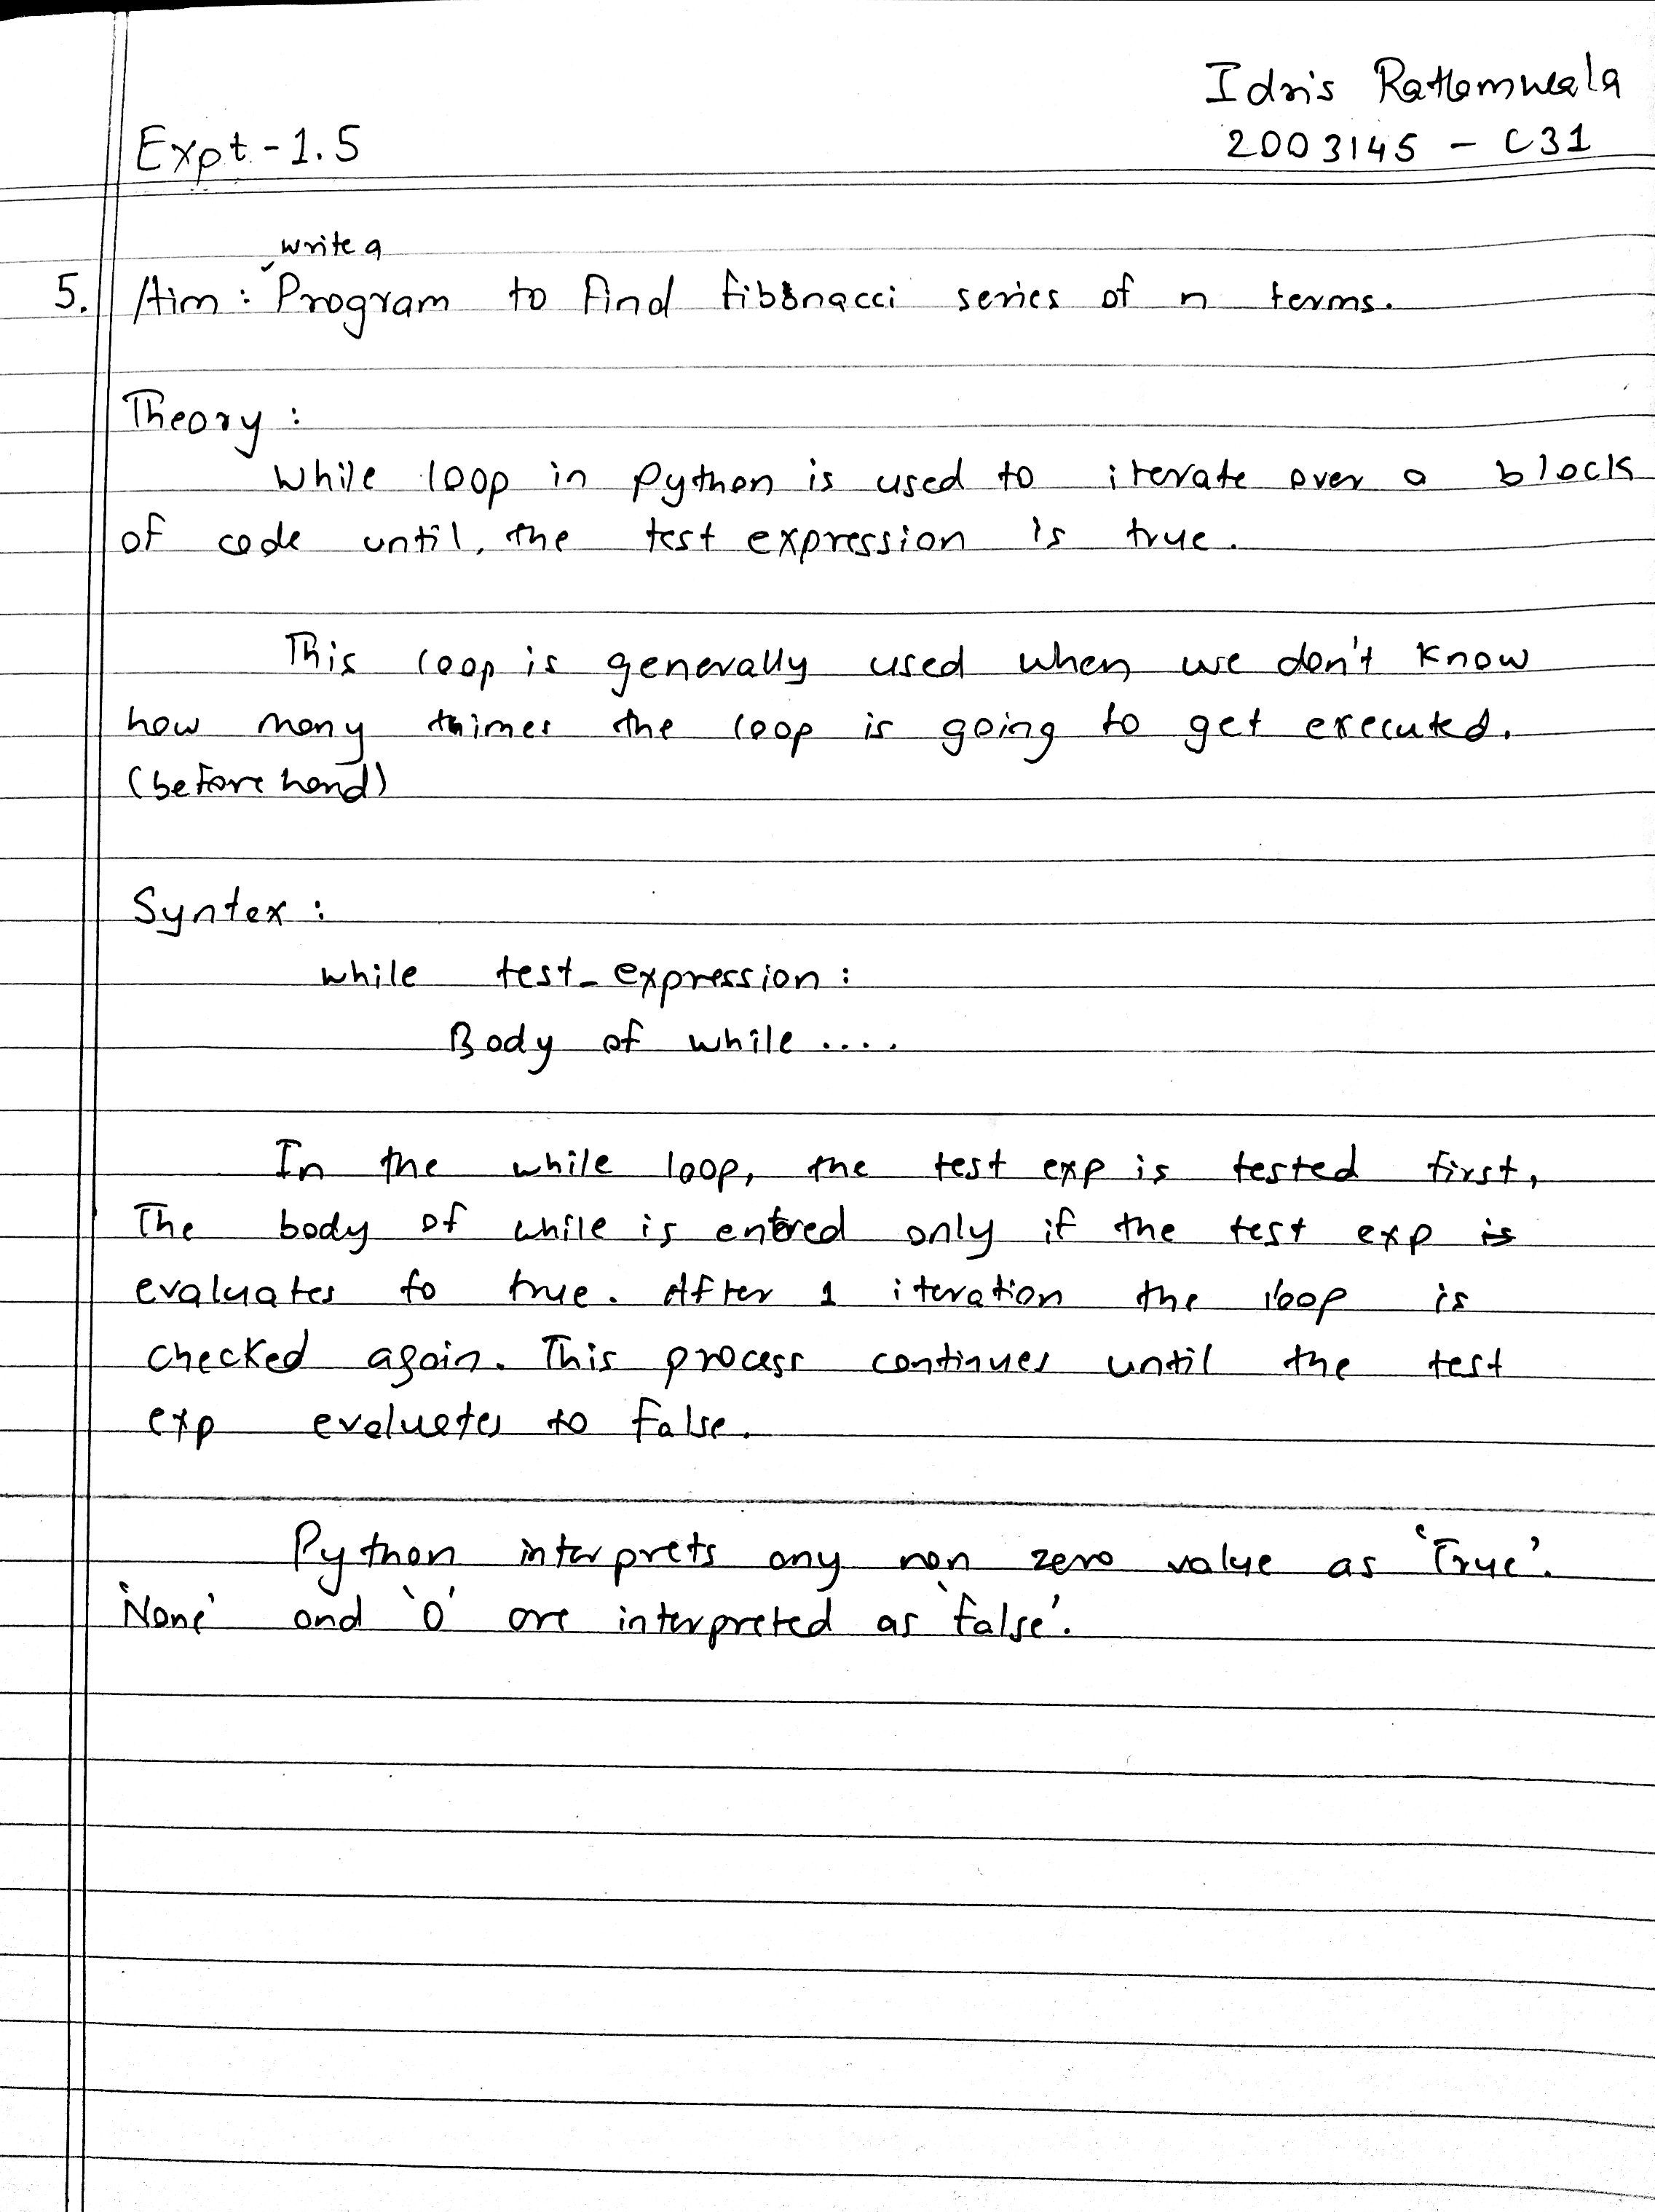 Idris Ratlamwala
2003145 - C31
Expt-1.5
write a
5. Aim: Program to find fibonacci series of n terms.
Theory:
While loop in python is used to iterate over a block
of code until, the test expression is true.
This loop is generally used when we don't know
how many thimes the loop is going to get executed.
(before hand)
Syntex:
while test_expression:
Body of while ....
In the while loop, the test exp is tested first,
The body of while is entered only if the test exp is
evaluates to true. After 1 iteration the loop is
checked again. This process continues until the test
exp evaluates to false.
Python interprets any non zero value as 'True'.
'None' and '0' are interpreted as 'false'.